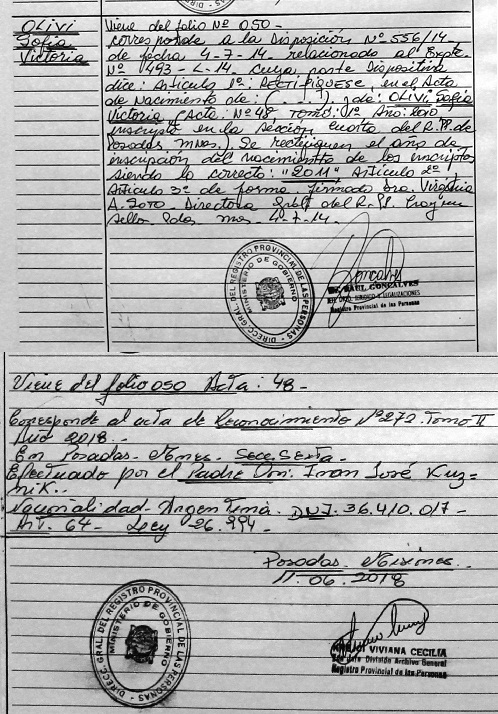 OLIVI
Sofía
Victoria
Viene del folio Nº 050 -
Corresponde a la Disposición Nº 556/14 -
de fecha 4-7-14 relacionado al Expte.
Nº 1493-L-14 Cuya parte Dispositiva
dice: Artículo 1º: RECTIFIQUESE, en el Acta
de Nacimiento de: (....), de: OLIVI Sofía
Victoria (Acta: Nº 48, Tomo: 01º Año: 2010
inscripto en la Sección cuarta del R.P.P. de
Posadas, Mnes.). Se rectifiquen el año de
inscripción del nacimiento de los inscriptos
siendo lo correcto: "2011" Artículo 2º,
Artículo 3º de forma. Firmado Dra. Virginia
A. SOTO. Directora Gral. del R.P.P.
sello. Pdas Mnes. 4-7-14.
DIRECC. GRAL. DEL REGISTRO PROVINCIAL DE LAS PERSONAS
MINISTERIO DE GOBIERNO
RAUL GONCALVES
Registro Provincial de las Personas
Viene del folio 050 Acta: 48 -
Corresponde al acta de Reconocimiento Nº 272. Tomo II
Año 2018. -
En Posadas - Mnes. Secc. Sexta -
Efectuado por el Padre Dn: Ivan José Kuz=
nik. -
Nacionalidad - Argentina. DNI. 36.410.017 -
Art. 64 - Ley 26.994 -
Posadas. Misiones.
11.06.2018
DIRECC. GRAL. DEL REGISTRO PROVINCIAL DE LAS PERSONAS
MINISTERIO DE GOBIERNO
VIVIANA CECILIA
División Archivo General
Registro Provincial de las Personas